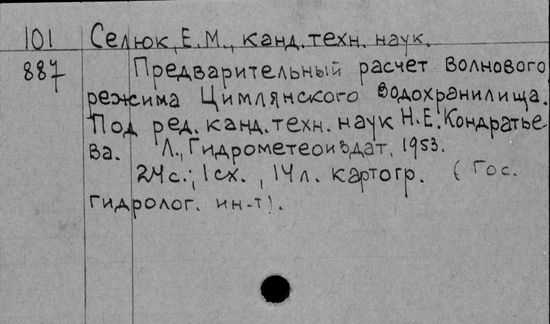 101 Селюк, Е.М., канд. техн. наук.
887 Предварительный расчет волнового
режима Цимлянского водохранилища.
Под ред. канд. техн. наук Н.Е. Кондратье-
ва. Л., Гидрометеоиздат, 1953.
24с.; 1сх., 14л. картогр. (Гос.
гидролог. ин-т).